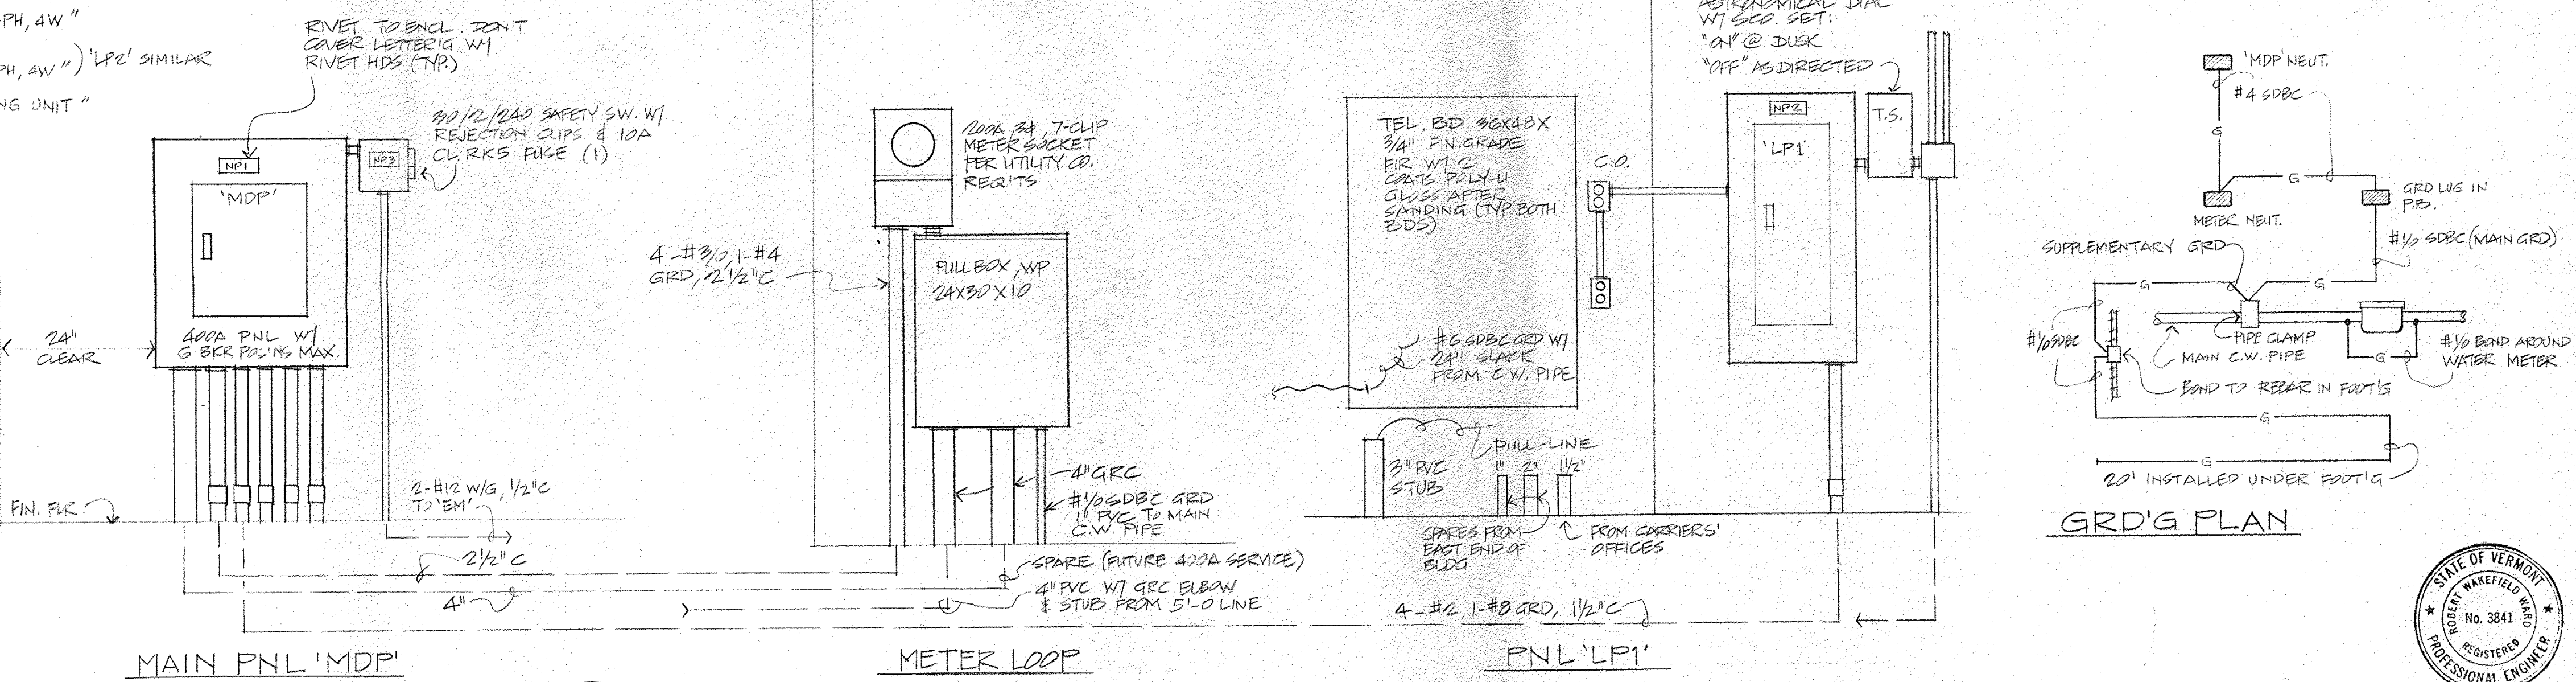 -PH, 4W "
PH, 4W ") 'LP2' SIMILAR
NG UNIT "
RIVET TO ENCL. DON'T
COVER LETTER'G W/
RIVET HDS (TYP.)
30/2/240 SAFETY SW. W/
REJECTION CLIPS & 10A
CL. RK5 FUSE (1)
NP1
NP3
'MDP'
400A PNL W/
6 BKR POS'NS MAX.
24"
CLEAR
FIN. FLR.
2-#12 W/G, 1/2"C
TO 'EM'
2 1/2" C
4"
MAIN PNL 'MDP'
200A, 3ϕ, 7-CLIP
METER SOCKET
PER UTILITY CO.
REQ'TS
4-#3/0, 1-#4
GRD, 2 1/2"C
PULL BOX, WP
24X30X10
4" GRC
#1/0 SDBC GRD
1" PVC TO MAIN
C.W. PIPE
SPARE (FUTURE 400A SERVICE)
4" PVC W/ GRC ELBOW
& STUB FROM 5'-0 LINE
METER LOOP
TEL. BD. 36X48X
3/4" FIN. GRADE
FIR W/ 2
COATS POLY-U
GLOSS AFTER
SANDING (TYP. BOTH
BDS)
#6 SDBC GRD W/
24" SLACK
FROM C.W. PIPE
C.O.
PULL-LINE
3" PVC
STUB
1" 2" 1 1/2"
SPARES FROM
EAST END OF
BLDG
FROM CARRIERS'
OFFICES
4-#2, 1-#8 GRD, 1 1/2"C
PNL 'LP1'
ASTRONOMICAL DIAL
W/ SCO. SET:
"ON" @ DUSK
"OFF" AS DIRECTED
NP2
'LP1'
T.S.
'MDP' NEUT.
#4 SDBC
G
G
METER NEUT.
GRD LUG IN
P.B.
#1/0 SDBC (MAIN GRD)
SUPPLEMENTARY GRD
G
G
#1/0 SDBC
PIPE CLAMP
MAIN C.W. PIPE
G
#1/0 BOND AROUND
WATER METER
BOND TO REBAR IN FOOT'G
G
G
20' INSTALLED UNDER FOOT'G
GRD'G PLAN
STATE OF VERMONT
ROBERT WAKEFIELD WARD
No. 3841
REGISTERED
PROFESSIONAL ENGINEER